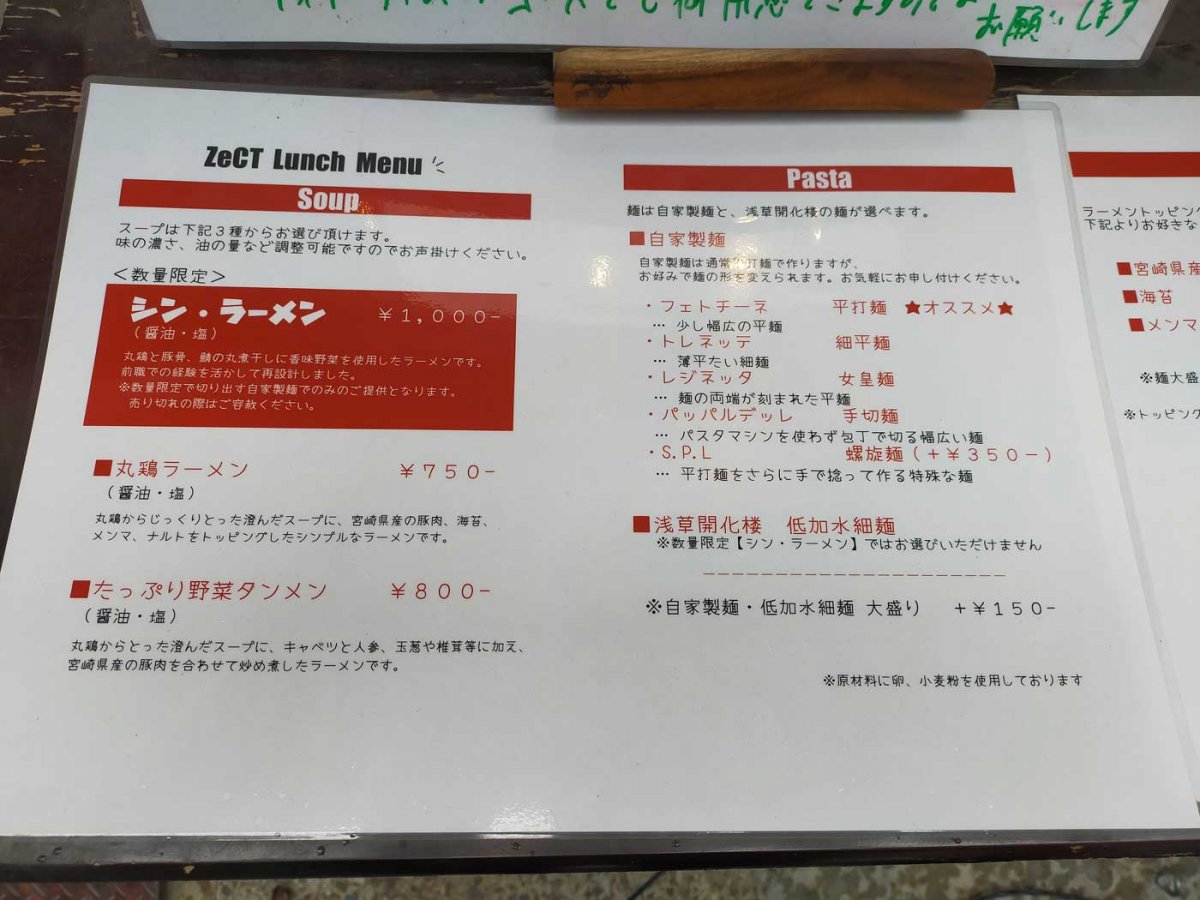 お願いします
ZeCT Lunch Menu
Soup
スープは下記３種からお選び頂けます。
味の濃さ、油の量など調整可能ですのでお声掛けください。
＜数量限定＞
シン・ラーメン ￥１，０００−
（醤油・塩）
丸鶏と豚骨、鯖の丸煮干しに香味野菜を使用したラーメンです。
前職での経験を活かして再設計しました。
※数量限定で切り出す自家製麺でのみのご提供となります。
売り切れの際はご容赦ください。
■丸鶏ラーメン ￥７５０−
（醤油・塩）
丸鶏からじっくりとった澄んだスープに、宮崎県産の豚肉、海苔、
メンマ、ナルトをトッピングしたシンプルなラーメンです。
■たっぷり野菜タンメン ￥８００−
（醤油・塩）
丸鶏からとった澄んだスープに、キャベツと人参、玉葱や椎茸等に加え、
宮崎県産の豚肉を合わせて炒め煮したラーメンです。
Pasta
麺は自家製麺と、浅草開化楼の麺が選べます。
■自家製麺
自家製麺は通常平打麺で作りますが、
お好みで麺の形を変えられます。お気軽にお申し付けください。
・フェトチーネ 平打麺 ★オススメ★
… 少し幅広の平麺
・トレネッテ 細平麺
… 薄平たい細麺
・レジネッタ 女皇麺
… 麺の両端が刻まれた平麺
・パッパルデッレ 手切麺
… パスタマシンを使わず包丁で切る幅広い麺
・Ｓ.Ｐ.Ｌ 螺旋麺（＋￥３５０−）
… 平打麺をさらに手で捻って作る特殊な麺
■浅草開化楼 低加水細麺
※数量限定【シン・ラーメン】ではお選びいただけません
※自家製麺・低加水細麺 大盛り ＋￥１５０−
※原材料に卵、小麦粉を使用しております
ラーメントッピング
下記よりお好きな
■宮崎県産
■海苔
■メンマ
※麺大盛
※トッピング